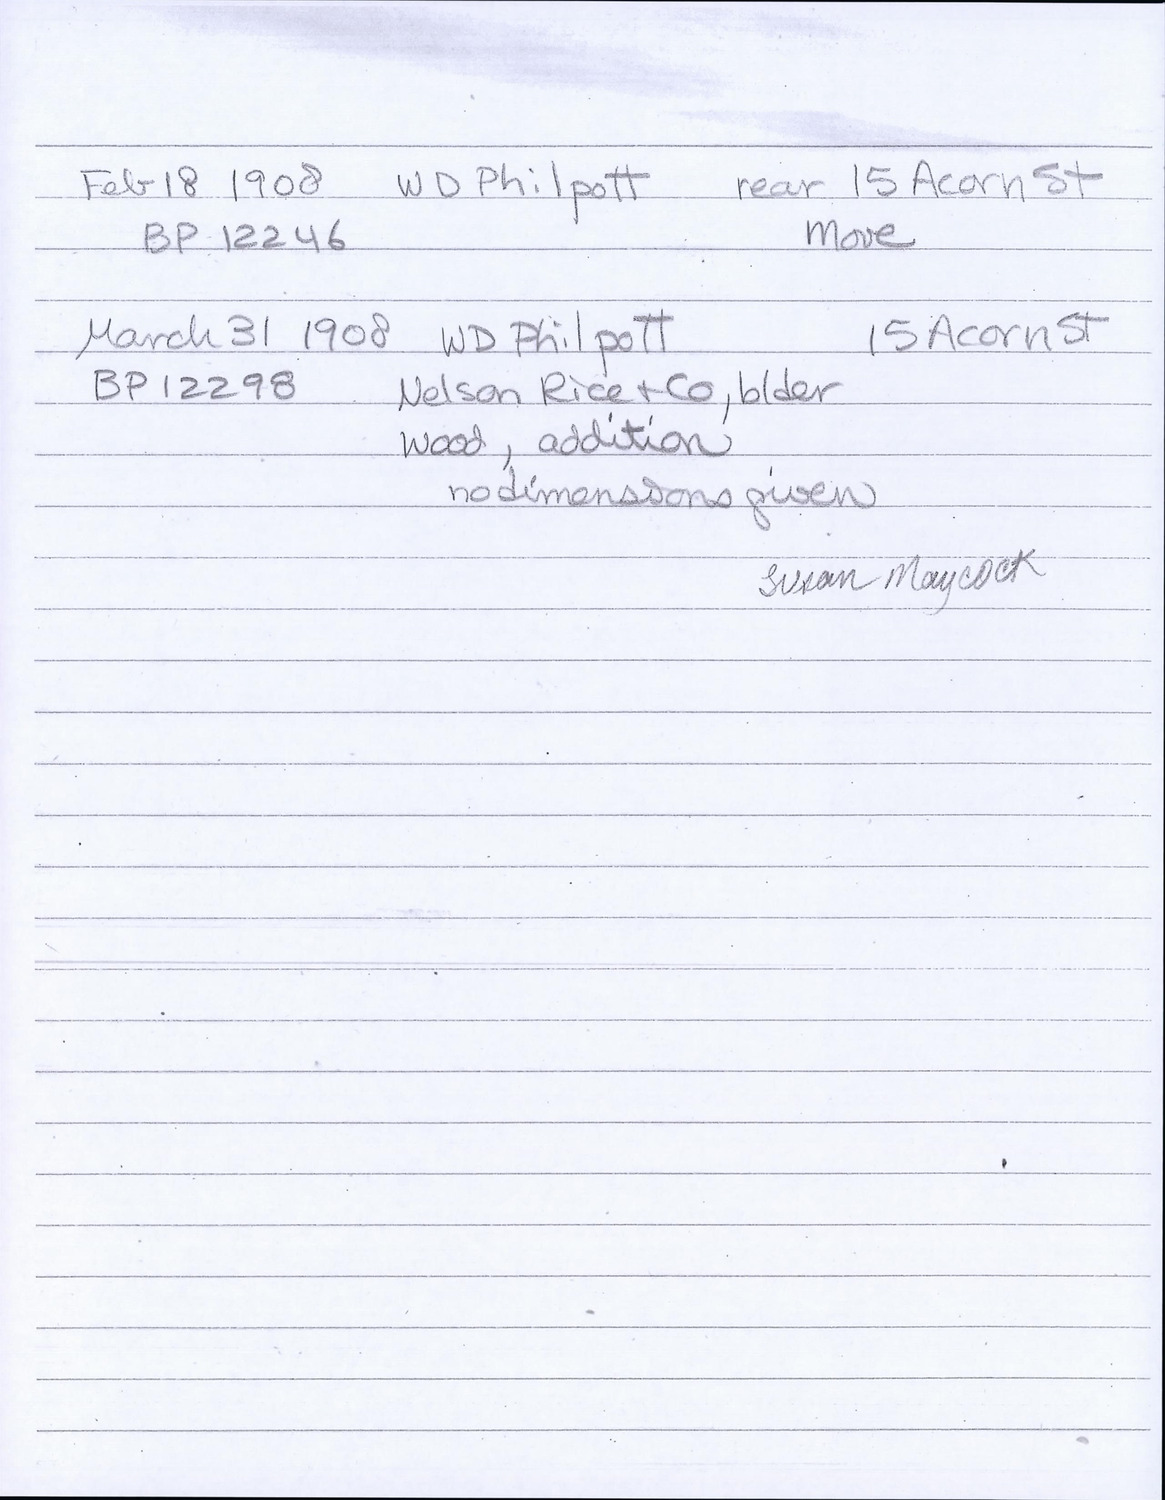 Feb 18 1908 WD Philpott rear 15 Acorn St
BP 12246 Move
March 31 1908 WD Philpott 15 Acorn St
BP 12298 Nelson Rice + Co, blder
Wood, addition
no dimensions given
Susan Maycock